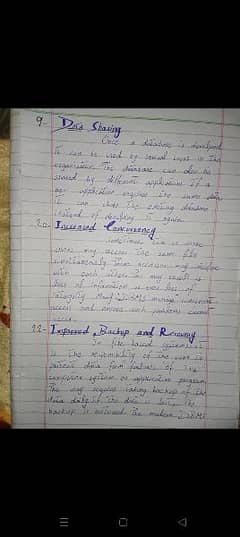 9- Data Sharing
Once a database is developed
it can be used by several users in the
organization. The database can also be
shared by different applications. If a
new application requires the same data,
it can share the existing database
instead of developing it again.
Increased Concurrency
Sometimes two or more
users may access the same file
simultaneously. Their accesses may interfere
with each other. It may result in
loss of information or even loss of
integrity. Many DBMS manage concurrent
access and ensure such problems cannot
occur.
Improved Backup and Recovery
In file based systems it
is the responsibility of the user to
protect data from failures of the
computer system or application program.
The may require taking backup of the
data daily. If the data is lost, the
backup is restored. The modern DBMS